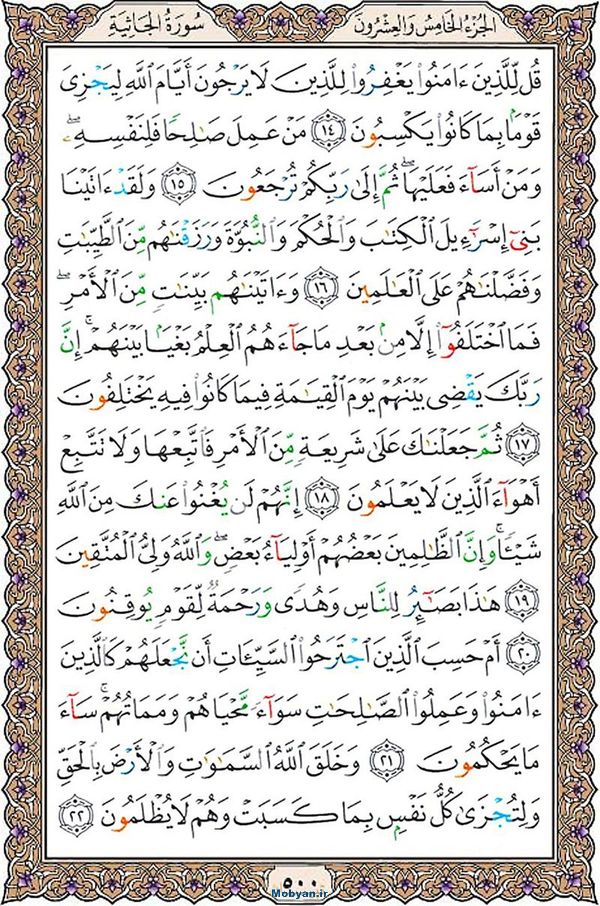 الجزء الخامس والعشرون
سورة الجاثية
قُل لِّلَّذِينَ ءَامَنُوا۟ يَغْفِرُوا۟ لِلَّذِينَ لَا يَرْجُونَ أَيَّامَ ٱللَّهِ لِيَجْزِىَ
قَوْمًۢا بِمَا كَانُوا۟ يَكْسِبُونَ ١٤ مَنْ عَمِلَ صَـٰلِحًا فَلِنَفْسِهِۦۖ
وَمَنْ أَسَآءَ فَعَلَيْهَاۖ ثُمَّ إِلَىٰ رَبِّكُمْ تُرْجَعُونَ ١٥ وَلَقَدْ ءَاتَيْنَا
بَنِىٓ إِسْرَٰٓءِيلَ ٱلْكِتَـٰبَ وَٱلْحُكْمَ وَٱلنُّبُوَّةَ وَرَزَقْنَـٰهُم مِّنَ ٱلطَّيِّبَـٰتِ
وَفَضَّلْنَـٰهُمْ عَلَى ٱلْعَـٰلَمِينَ ١٦ وَءَاتَيْنَـٰهُم بَيِّنَـٰتٍ مِّنَ ٱلْأَمْرِۖ
فَمَا ٱخْتَلَفُوٓا۟ إِلَّا مِنۢ بَعْدِ مَا جَآءَهُمُ ٱلْعِلْمُ بَغْيًۢا بَيْنَهُمْۚ إِنَّ
رَبَّكَ يَقْضِى بَيْنَهُمْ يَوْمَ ٱلْقِيَـٰمَةِ فِيمَا كَانُوا۟ فِيهِ يَخْتَلِفُونَ
١٧ ثُمَّ جَعَلْنَـٰكَ عَلَىٰ شَرِيعَةٍ مِّنَ ٱلْأَمْرِ فَٱتَّبِعْهَا وَلَا تَتَّبِعْ
أَهْوَآءَ ٱلَّذِينَ لَا يَعْلَمُونَ ١٨ إِنَّهُمْ لَن يُغْنُوا۟ عَنكَ مِنَ ٱللَّهِ
شَيْـًٔاۚ وَإِنَّ ٱلظَّـٰلِمِينَ بَعْضُهُمْ أَوْلِيَآءُ بَعْضٍۖ وَٱللَّهُ وَلِىُّ ٱلْمُتَّقِينَ
١٩ هَـٰذَا بَصَـٰٓئِرُ لِلنَّاسِ وَهُدًى وَرَحْمَةٌ لِّقَوْمٍ يُوقِنُونَ
٢٠ أَمْ حَسِبَ ٱلَّذِينَ ٱجْتَرَحُوا۟ ٱلسَّيِّـَٔاتِ أَن نَّجْعَلَهُمْ كَٱلَّذِينَ
ءَامَنُوا۟ وَعَمِلُوا۟ ٱلصَّـٰلِحَـٰتِ سَوَآءً مَّحْيَاهُمْ وَمَمَاتُهُمْۚ سَآءَ
مَا يَحْكُمُونَ ٢١ وَخَلَقَ ٱللَّهُ ٱلسَّمَـٰوَٰتِ وَٱلْأَرْضَ بِٱلْحَقِّ
وَلِتُجْزَىٰ كُلُّ نَفْسٍۭ بِمَا كَسَبَتْ وَهُمْ لَا يُظْلَمُونَ ٢٢
٥٠٠
Mobyan.ir